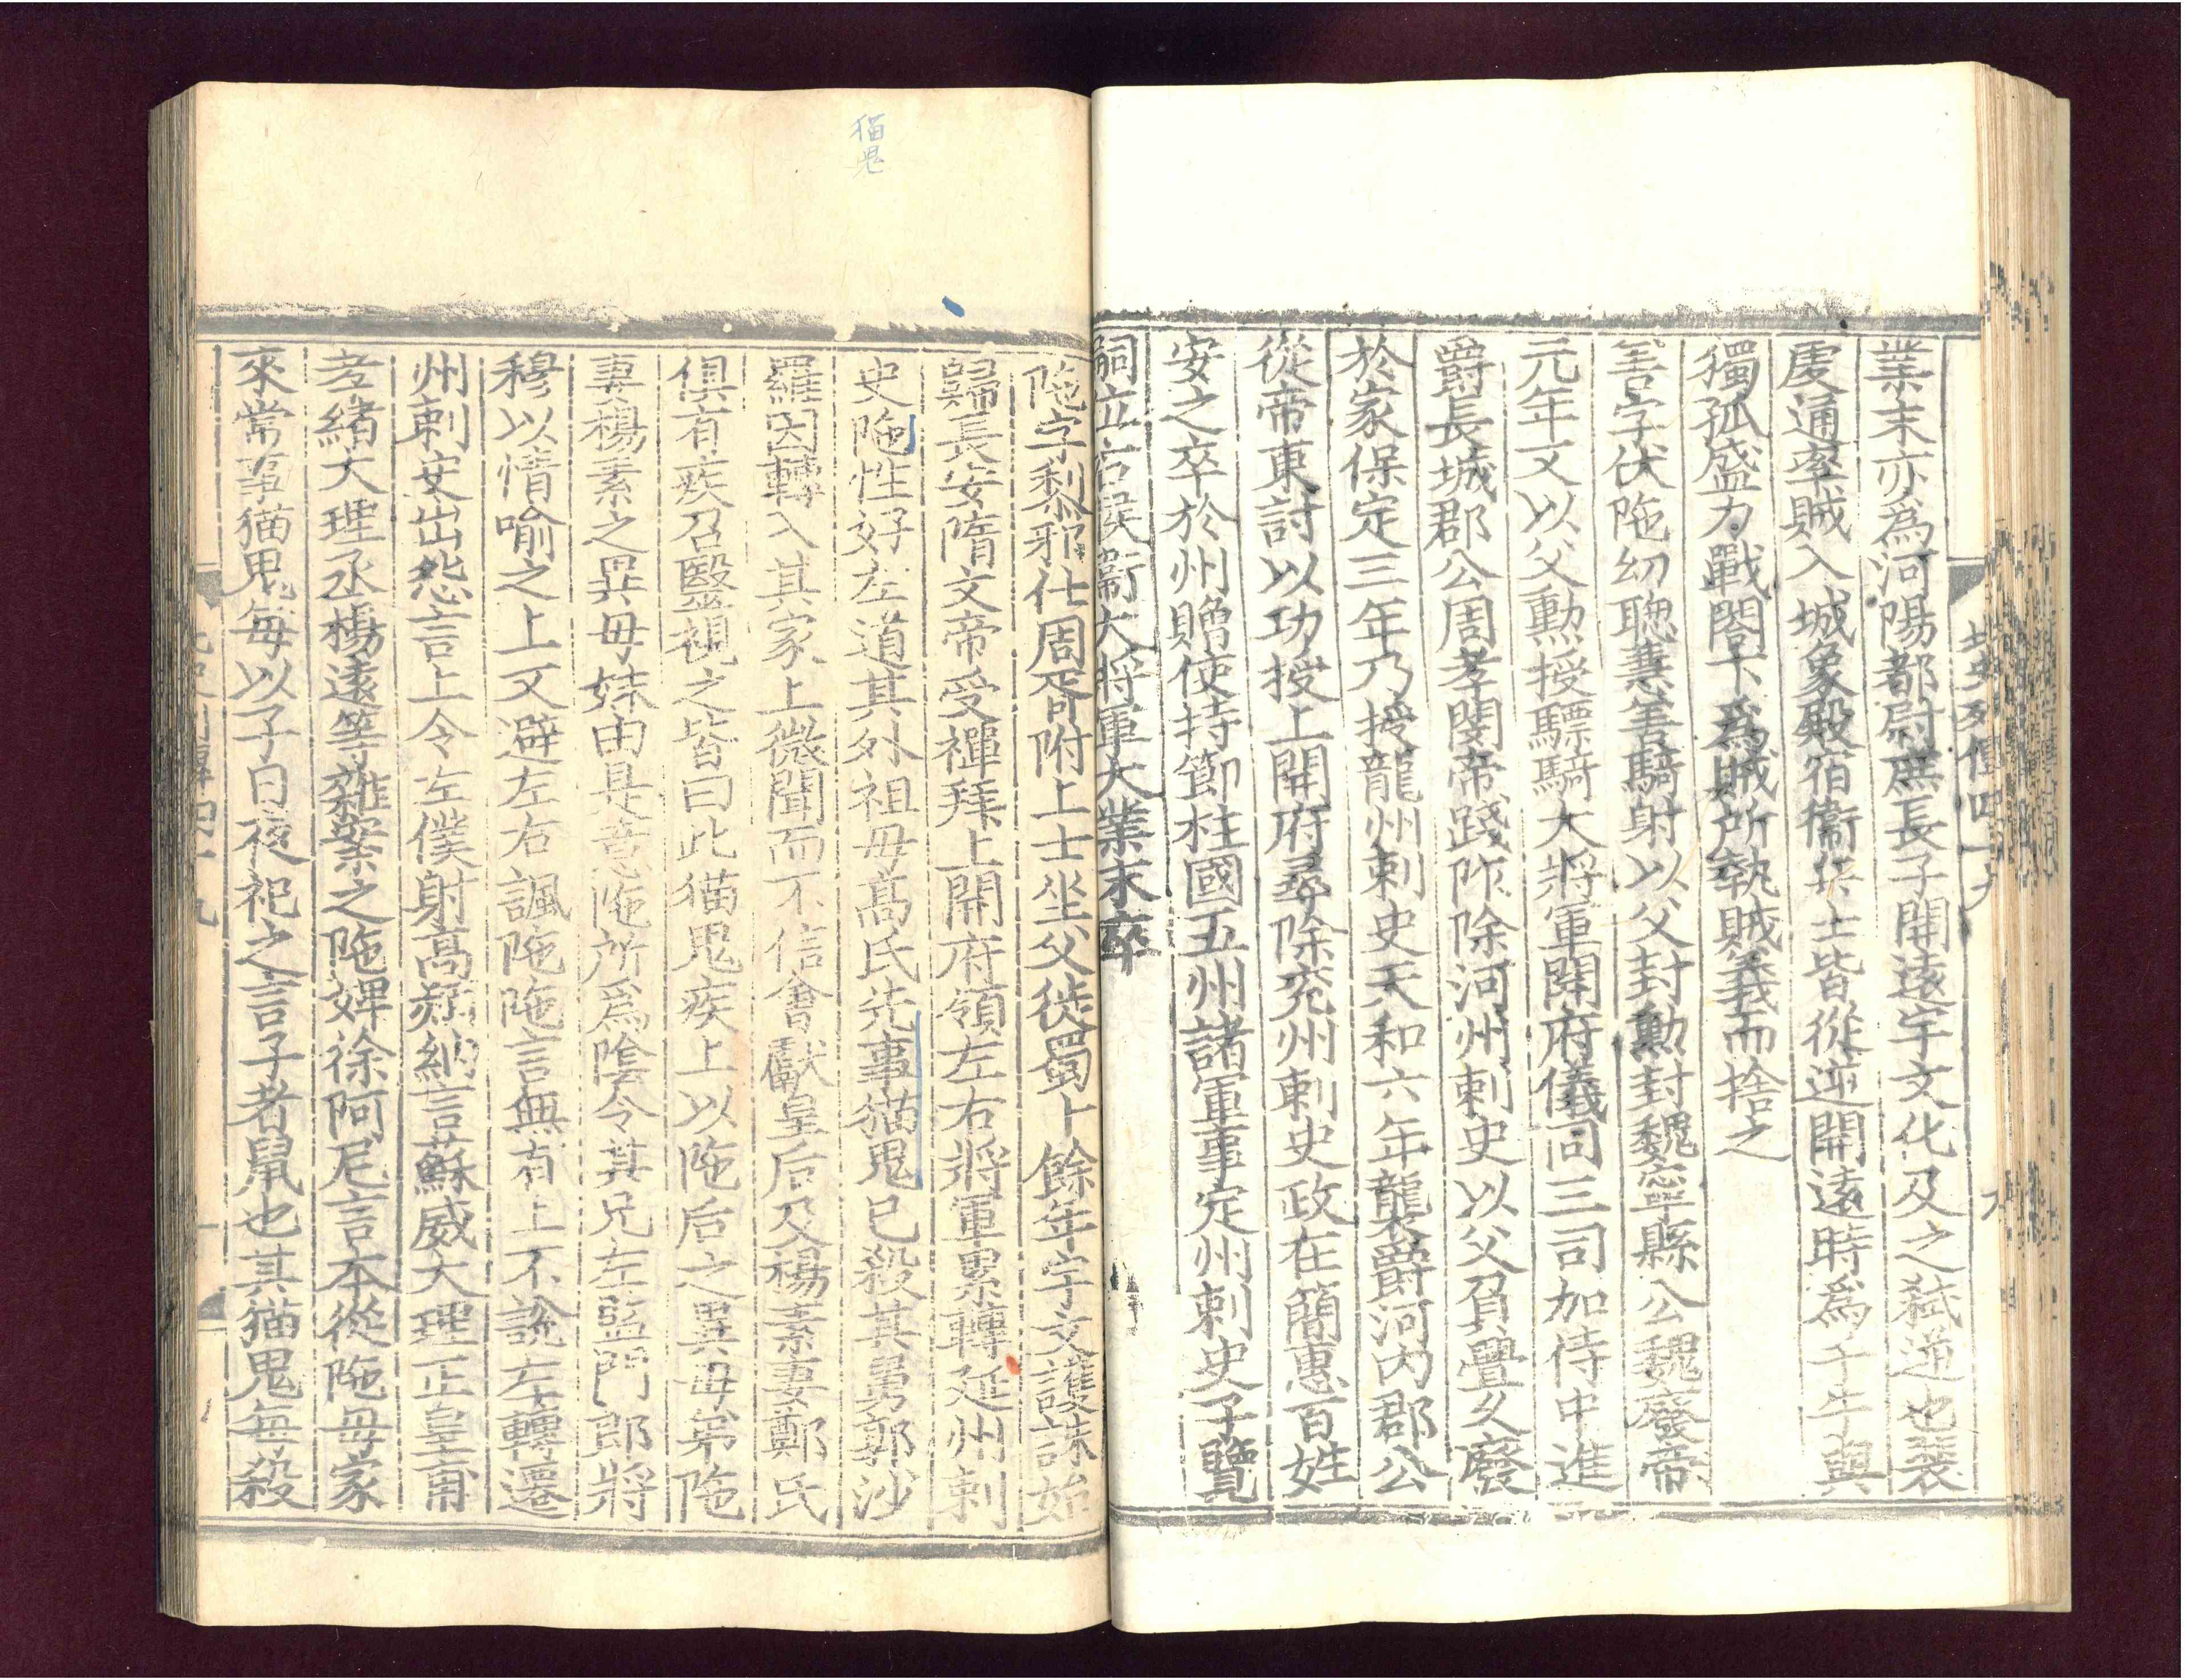 業末亦爲河陽都尉庶長子開遠宇文化及之弑逆也裴
虔通率賊入城象殿宿衞兵士皆從逆開遠時爲千牛與
獨孤盛力戰閤下爲賊所執賊義而捨之
善字伏陁幼聰慧善騎射以父封勳封魏寧縣公魏廢帝
元年又以父勳授驃騎大將軍開府儀同三司加侍中進
爵長城郡公周孝閔帝踐阼除河州刺史以父負釁久廢
於家保定三年乃授龍州刺史天和六年襲爵河内郡公
從帝東討以功授上開府尋除兖州刺史政在簡惠百姓
安之卒於州贈使持節柱國五州諸軍事定州刺史子覽
嗣立右候衞大將軍大業末卒
北史列傳四十九
九
猫鬼
陁字黎邪仕周胥附上士坐父徙蜀十餘年宇文護誅始
歸長安隋文帝受禪拜上開府領左右將軍累轉延州刺
史陁性好左道其外祖母高氏先事猫鬼已殺其舅郭沙
羅因轉入其家上微聞而不信會獻皇后及楊素妻鄭氏
俱有疾召醫視之皆曰此猫鬼疾上以陁后之異母弟陁
妻楊素之異母妹由是意陁所爲陰令其兄左監門郎將
穆以情喻之上又避左右諷陁陁言無有上不説左轉遷
州刺史出怨言上令左僕射高熲納言蘇威大理正皇甫
孝緒大理丞楊遠等雜案之陁婢徐阿尼言本從陁母家
來常事猫鬼每以子日夜祀之言子者鼠也其猫鬼每殺